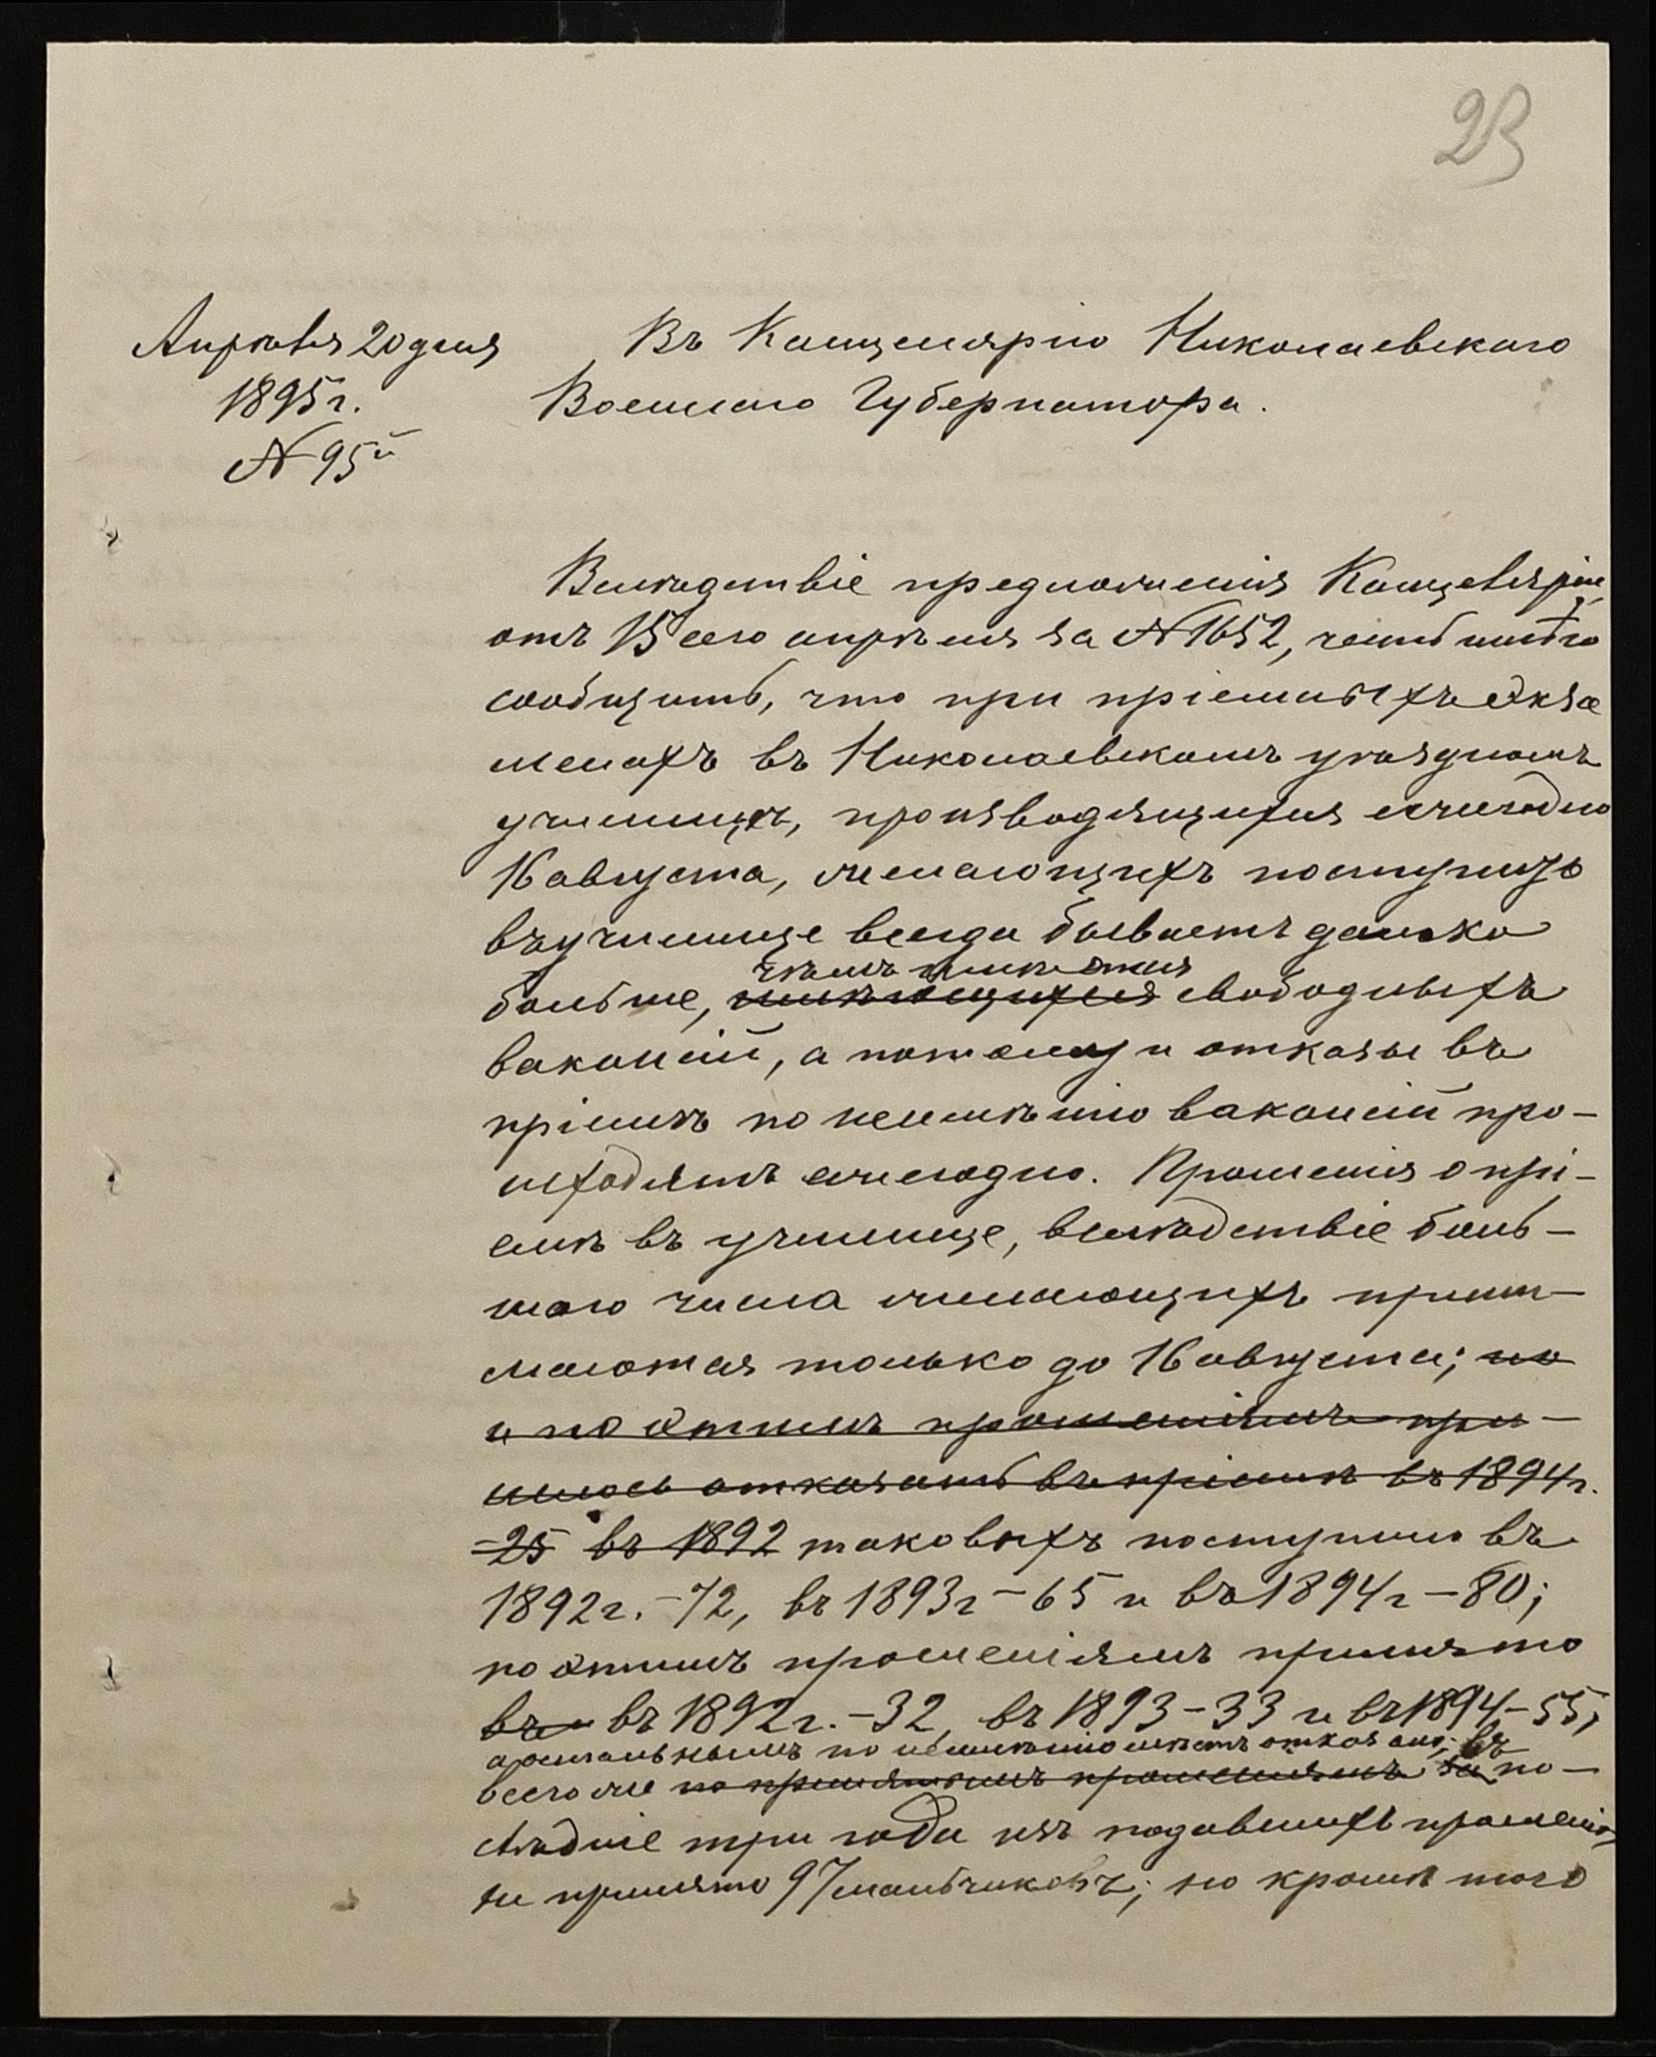 23
Апрѣля 20 дня
1895 г.
№ 95й
Въ Канцелярію Николаевскаго
Военнаго Губернатора.
Вслѣдствіе предложенія Канцеляріи,
отъ 15 сего апрѣля за № 1652, честь имѣю
сообщить, что при пріемныхъ экза
менахъ въ Николаевскомъ уѣздномъ
училищѣ, производящихся ежегодно
16 августа, желающихъ поступить
въ училище всегда бываетъ далеко
чѣмъ имѣется
больше, имѣющихся свободныхъ
вакансій, а потому и отказы въ
пріемѣ по неимѣнію вакансій про-
исходятъ ежегодно. Прошенія о прі-
емѣ въ училище, вслѣдствіе боль-
шаго числа желающихъ прини-
маются только до 16 августа; но
и по этимъ прошеніямъ при-
шлось отказать въ пріемѣ въ 1894 г.
-25 въ 1892 таковыхъ поступило въ
1892 г. - 72, въ 1893 г - 65 и въ 1894 г - 80;
по этимъ прошеніямъ принято
въ въ 1892 г. - 32, въ 1893 - 33 и въ 1894 - 55,
а остальнымъ по неимѣнію мѣстъ отказано; въ
всего же по принятымъ прошеніямъ за по-
слѣдніе три года изъ подавшихъ прошенія
не принято 97 мальчиковъ; но кромѣ того